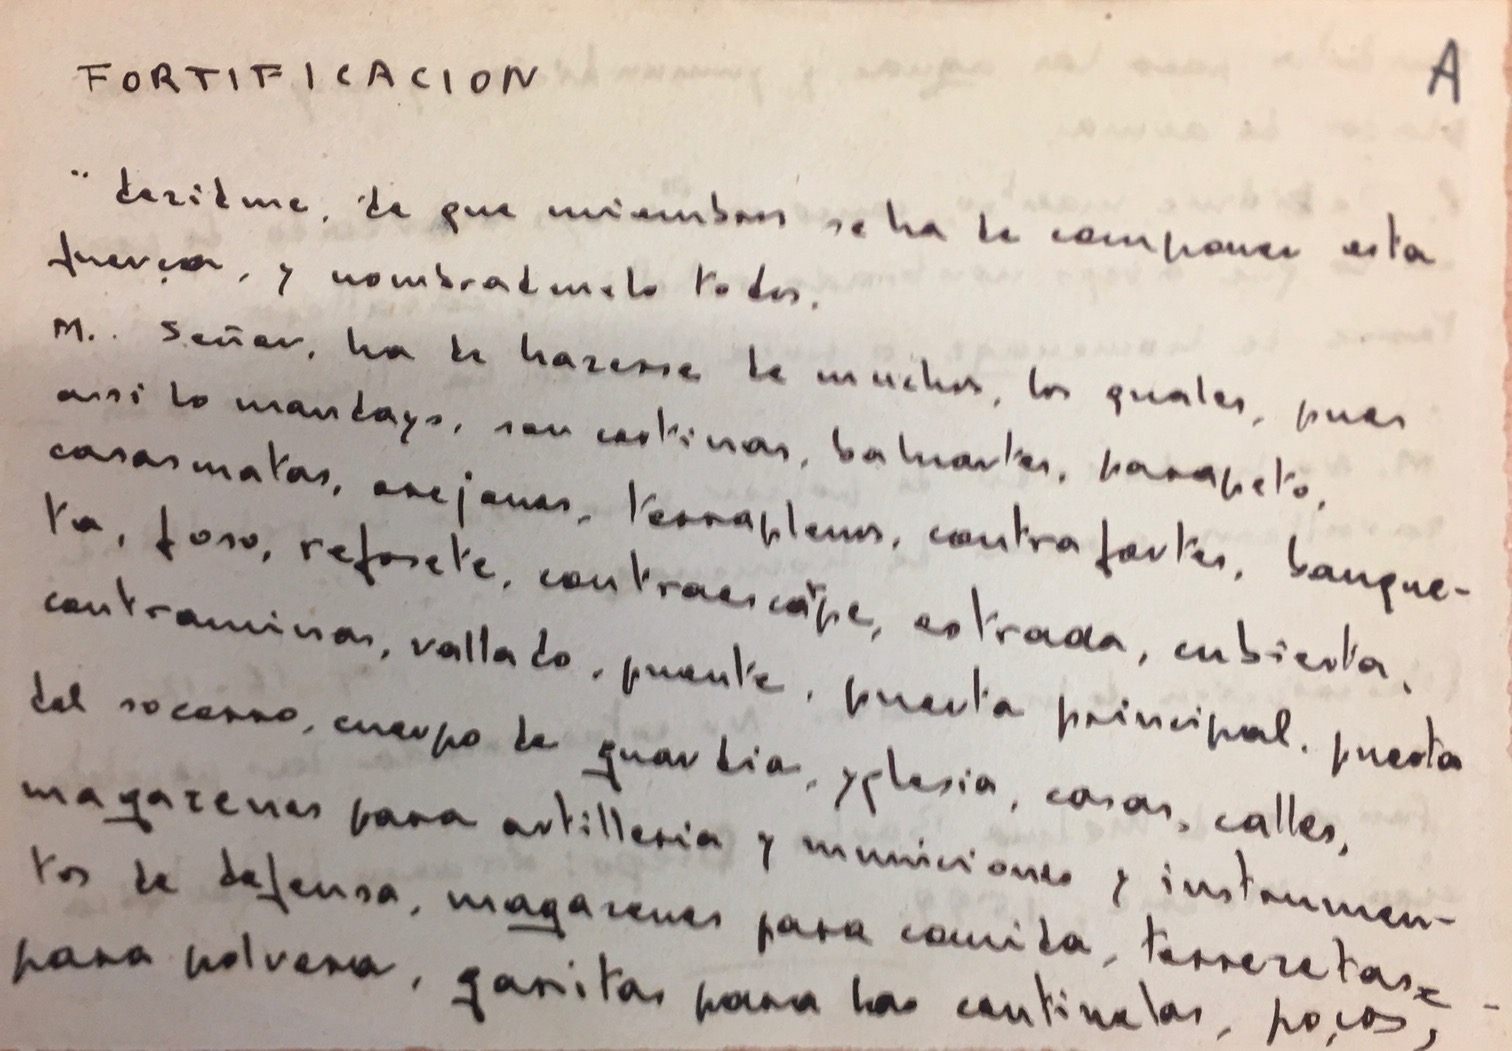 FORTIFICACION
A
"dezidme, de que miembros se ha de componer esta
fuerça, y nombradmelo todos.
M.. Señor, ha de hazerse de muchos, los quales, pues
assi lo mandays, son cortinas, baluartes, parapeto,
casasmatas, orejones, terraplenos, contrafortes, banque-
ta, foso, refosete, contraescarpe, estrada, cubierta,
contraminas, vallado, puente, puerta principal, puerta
del socorro, cuerpo de guardia, yglesia, casas, calles,
magazenes para artilleria y municiones y instrumen-
tos de defensa, magazenes para comida, torrezetas
para polvora, garitas para las centinelas, poços,